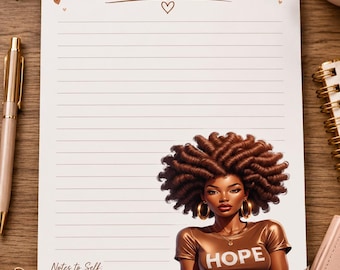 Notes to Self
HOPE